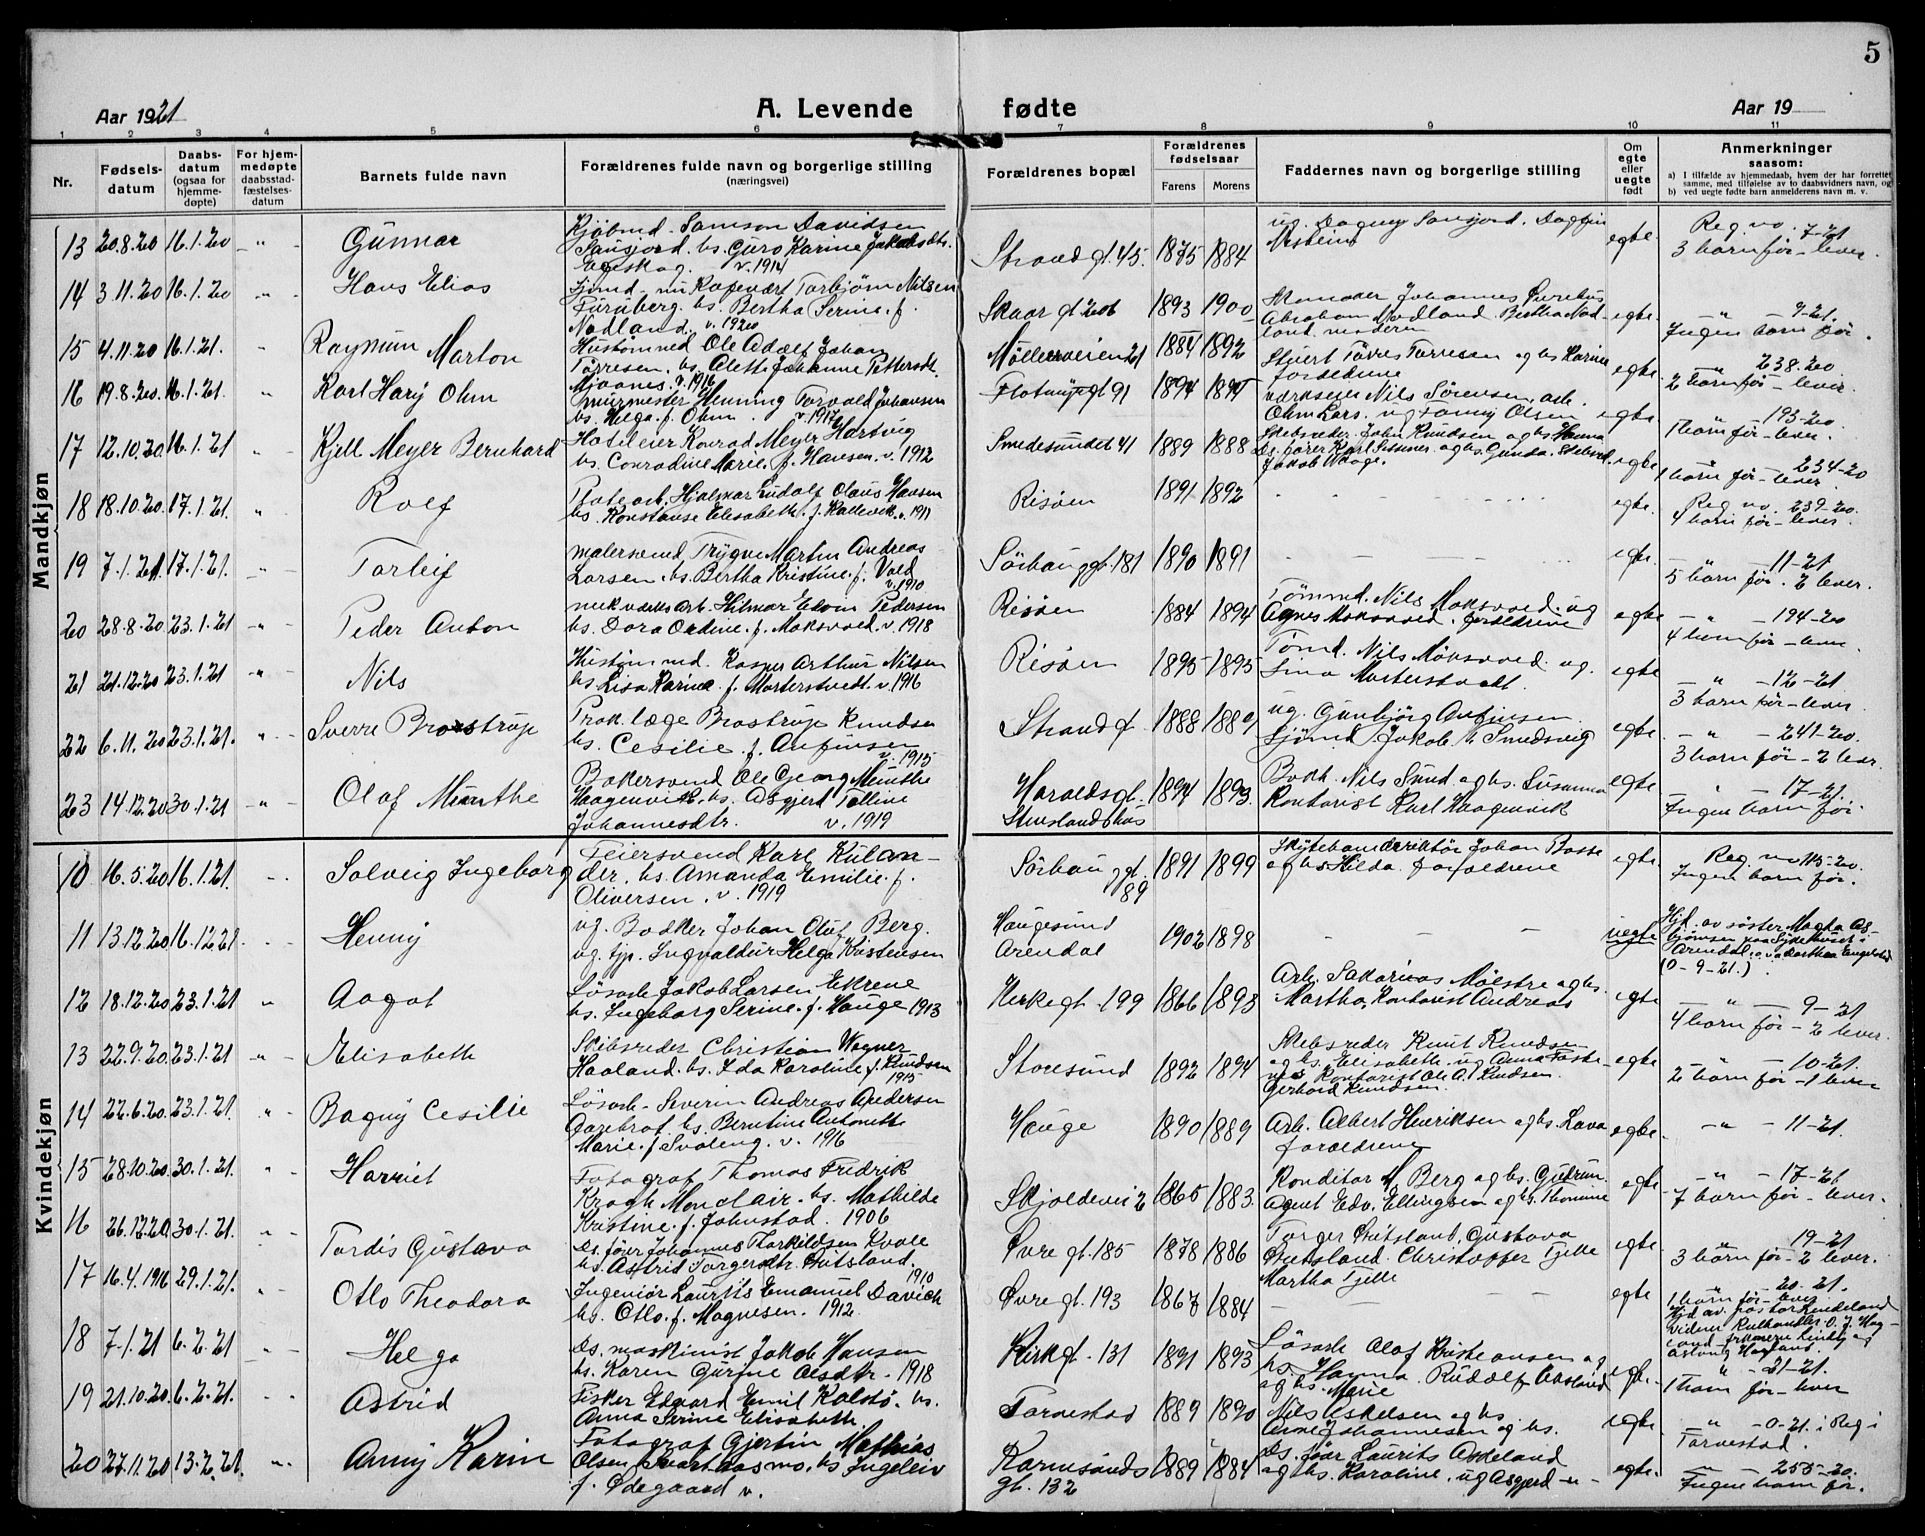 5
Aar 1921
A. Levende fødte
Aar 19
1 2 3 4 5 6 7 8 9 10 11
Nr.
Fødsels-datum
Daabs-datum (ogsaa for hjemme-døpte)
For hjem-medøpte daabsstad-fæstelses-datum
Barnets fulde navn
Forældrenes fulde navn og borgerlige stilling
(næringsvei)
Forældrenes bopæl
Forældrenes fødselsaar
Farens Morens
Faddernes navn og borgerlige stilling
Om egte eller uegte født
Anmerkninger
saasom:
a) I tilfælde av hjemmedaab, hvem der har forrettet
samme, med tilføielse av to daabsvidners navn, og
b) ved uegte fødte barn anmelderens navn m. v.
Mandkjøn
13 20.8.20 16.1.20 Gunnar
Samson Davidsen
v. 1914
Strandgt. 45. 1875 1884
egte. Reg. no. 7-21
3 barn før - lever.
14 3.11.20 16.1.20 Hans Elias
Torbjørn Nilsen
Furuberg. hs. Bertha Serine. f.
Nodland. v. 1920
Skaargt 206 1893 1900
egte. 9-21.
Ingen barn før.
15 4.11.20 16.1.21. Raymun Marton
Ole Adolf Johan
Torresen. hs. Alette Johanne
v. 1916
Møllerveien 21 1884 1892
forældrene
egte. 238.20
2 barn før - lever.
16 19.8.20. 16.1.21. Karl Harÿ Ohm
Murmester Henning Torvald Johansen
hs. Helga. f. Ohm. v. 1917
91 1894
Nils Sørensen, arb.
Ohm Lars. ug Fanny Olsen
egte 193-20
1 barn før - lever.
17 12.10.20. 16.1.21 Kjell Meyer Bernhard
Konrad Meyer Hartvig
hs. Conradine Marie. f. Hansen. v. 1912
Smedesundet 41 1889 1888
Skibsreder John Knudsen og hs Hanna
egte 234-20
1 barn før - lever.
18 18.10.20. 17.1.21. Rolf
Hjalmar Ludolf Olaus Hansen
hs. Konstanse Elisabeth. f. Kallevik. v. 1911
Risøen 1891 1892
egte. Reg. no. 239-20.
4 barn før - lever.
19 7.1.21. 17.1.21. Torleif
malersvend Trygve Martin Andreas
Larsen. hs. Bertha Kristine. f. Vold
v. 1910
Sørhauggt. 181 1890 1891
egte. 11-21
5 barn før. 2 lever.
20 28.8.20 23.1.21 Peder Anton
mek. værks arb. Hilmar Edvin Pedersen
hs. Dora Ordine. f. Moksvold. v. 1918
Risøen 1884 1894
Tømmd. Nils Moksvold. ug
Agnes Moksvold. forældrene
egte 194-20
4 barn før - lever.
21 21.12.20 23.1.21 Nils
Kasper Arthur Nilsen
hs Lisa Karine. f. v. 1916
Risøen 1895 1895
Tømd. Nils Moksvold. ug.
egte 12-21
3 barn før - lever.
22 6.11.20 23.1.21. Sverre Brostrup
Prak. læge Brostrup Knudsen
hs. Cesilie. f. Anfinsen
v. 1915
Strandgt 1888 1889
ug. Gunbjørg Anfinsen.
Sjømd. Jakob Smedsvig
egte. 241-20.
3 barn før - 2 lever.
23 14.12.20 30.1.21 Olaf Munthe
Bakersvend Ole Georg Munthe
Haagenvik. hs. Asgjerd Talline
Johannesdtr. v. 1919
Haraldsgt. 1894 1893.
Bokh. Nils Sund og hs. Susanna
Kontorist Karl Haagenvik
egte 17-21.
Ingen barn før.
Kvindekjøn
10 16.5.20 16.1.21. Solveig Ingeborg
Feiersvend Karl Kulan-
der. hs. Amanda Emilie. f.
Oliversen. v. 1919
Sørhauggt. 89 1891 1899
Johan Bosse
og hs Hilda. forældrene
egte. Reg. no 115-20.
Ingen barn før.
11 13.12.20 16.12.21. Henny
ug. Bødker Johan Oluf Berg.
ug. tjp. Helga Kristensen
Haugesund
Arendal 1902 1898
uegte Hjd. av søster Magda As-
bjørnsen paa Sykehuset i
Arendal.
(0-9-21.)
12 18.12.20 23.1.21 Aagot
Løsarb. Jakob Larsen Ekrene
hs. Ingeborg Serine. f. Hauge 1913
Kirkegt. 199 1866 1893
Arb. Sakarias Mølstre og hs.
Martha, Kontorist Andreas
egte 9-21
4 barn før - 2 lever.
13 22.9.20 23.1.21 Elisabeth
Skibsreder Christian Wagner
Haaland. hs. Ida Karoline f. Knudsen
1915
Storesund 1892 1894
Skibsreder Knut Knudsen
og hs. Elisabeth. ug Anna
Kontorist Ole A. Knudsen.
Gerhard Knudsen.
egte 10-21.
2 barn før - 1 lever
14 22.6.20. 23.1.21. Dagny Cesilie
Løsarb. Severin Andreas Andersen
hs. Berntine Antonette
Marie. f. Svaleng. v. 1916
Hauge 1890 1889
Arb. Albert Henriksen og hs. Lava
forældrene
egte. 11-21.
15 28.10.20. 30.1.21. Harriet
Fotograf Thomas Fredrik
Krogh Monclair. hs. Mathilde
Kristine. f. Johnstad. 1906
Skjoldevei 2 1865 1883.
Konditor M Berg og hs. Gudrun.
Agent Edv. Ellingsen og hs. Thomine
egte. 17-21
7 barn før - lever.
16 26.12.20 30.1.21. Tordis Gustava
Ds. fører Johannes Thorkildsen Kvale
hs. Astrid Torgersdtr.
1910
Øvregt. 185 1878 1886
Gustava
Christopher Tjelle
Martha Tjelle
egte. 19-21
3 barn før - 2 lever.
17 16.4.1916 29.1.21. Otlo Theodora
Ingeniør Laurits Emanuel David
hs. Otlo. f. Magnesen. 1912.
Øvregt. 193 1867 1884
egte 20-21.
1 barn før - lever
Hjd av. pastor
18 7.1.21 6.2.21 Helga
Ds. maskinist Jakob Hansen
hs. Karen Gurine Olsdtr. 1918
Kirkgt. 131 1891 1893
Løsarb Olaf Kristiansen og
hs. Hanna. Rudolf
og hs. Marie
egte. 21-21.
1 barn før - lever
19 21.10.20 6.2.21. Astrid
Fisker Edvard Emil Kalstø. hs.
Anna Serine Elisabeth.
Torvestad 1889 1890
Nils Eskelsen og hs
Johannesen og hs.
egte. 0-21. i Reg i
Torvestad.
20 27.11.20 13.2.21. Anny Karin
Fotograf Gjertin Mathias
Olsen hs Ingeleiv
f. Ødegaard v.
Karmsunds
gt. 132 1889 1884
Ds. fører Laurits Aadeland
og hs. Karoline. ug Asgjerd
egte. 255-20.
Ingen barn før.